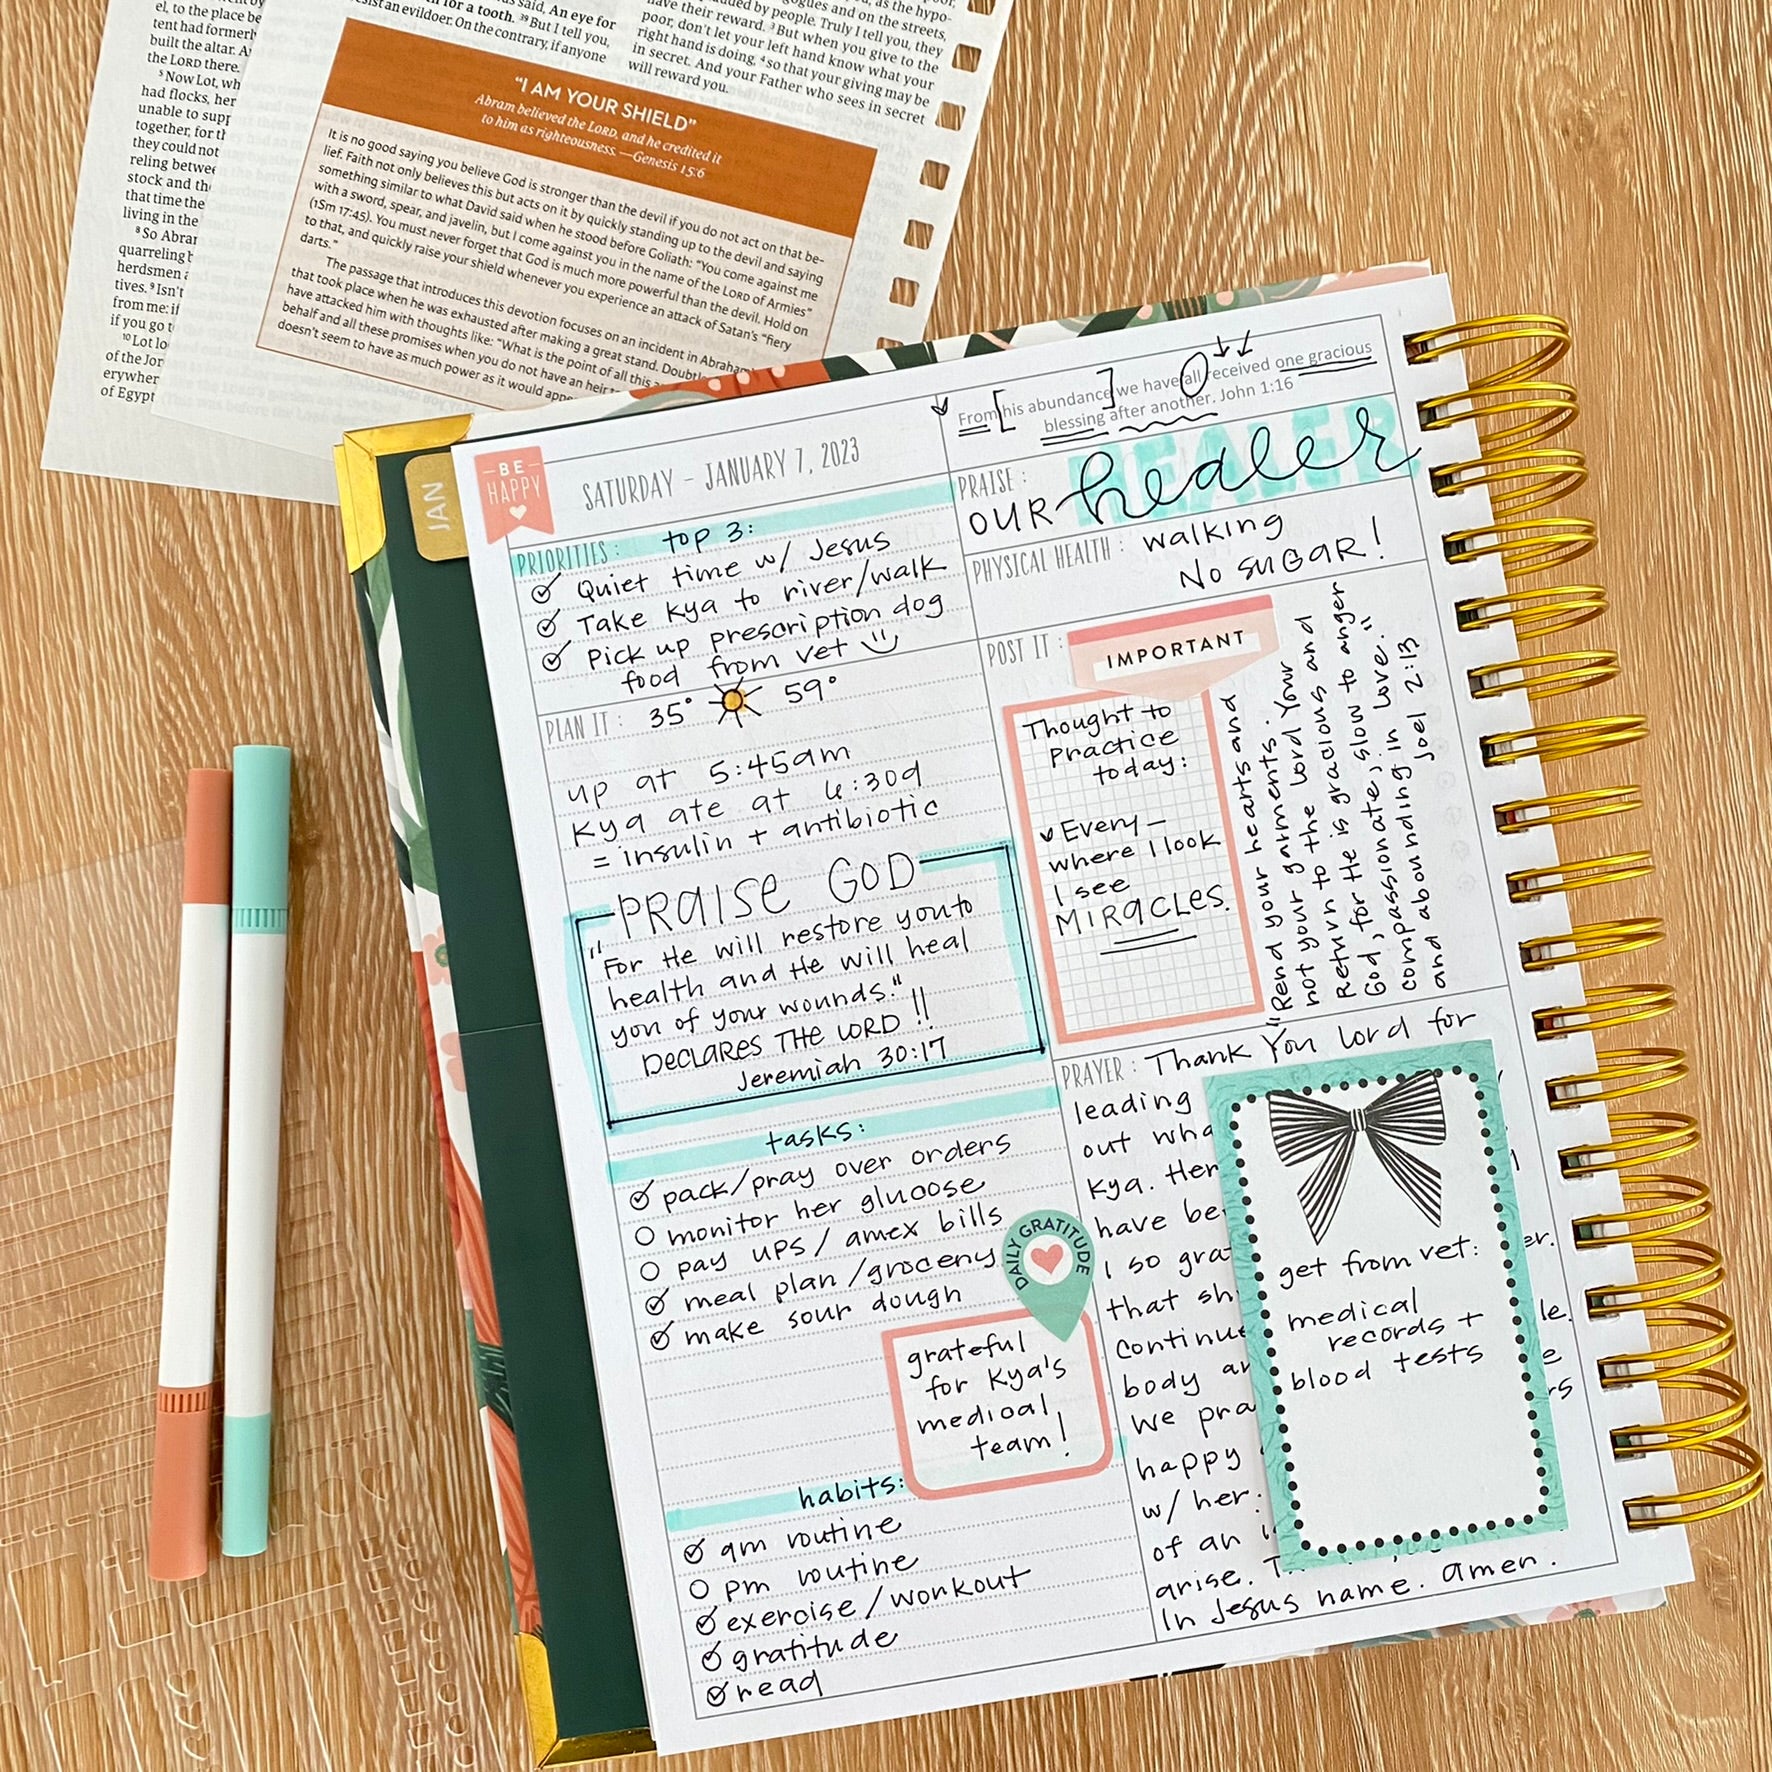 el, to the place be
tent had formerl
built the altar. A
the LORD there.
5 Now Lot, wh
had flocks, her
unable to supp
together, for th
they could not
reling betwee
stock and the
that time the
living in the
8 So Abrar
quarreling b
herdsmen a
tives. 9 Isn't
from me: if
if you go t
10 Lot lo
of the Jor
erywher
of Egypt
said, An eye for
for a tooth. 39 But I tell you,
resist an evildoer. On the contrary, if anyone
gogues and on the streets,
applauded by people. Truly I tell you, they
have their reward. 3 But when you give to the
poor, don't let your left hand know what your
right hand is doing, 4 so that your giving may be
in secret. And your Father who sees in secret
will reward you.
"I AM YOUR SHIELD"
Abram believed the LORD, and he credited it
to him as righteousness. —Genesis 15:6
It is no good saying you believe God is stronger than the devil if you do not act on that be-
lief. Faith not only believes this but acts on it by quickly standing up to the devil and saying
something similar to what David said when he stood before Goliath: "You come against me
with a sword, spear, and javelin, but I come against you in the name of the LORD of Armies"
(1Sm 17:45). You must never forget that God is much more powerful than the devil. Hold on
to that, and quickly raise your shield whenever you experience an attack of Satan's "fiery
darts."
The passage that introduces this devotion focuses on an incident in Abraham
that took place when he was exhausted after making a great stand. Doubtl
have attacked him with thoughts like: "What is the point of all this
behalf and all these promises when you do not have an heir to
doesn't seem to have as much power as it would appe
JAN
BE
HAPPY
SATURDAY - JANUARY 7, 2023
PRIORITIES: top 3:
Quiet time w/ Jesus
Take Kya to river/walk
Pick up prescription dog
food from vet
PLAN IT: 35° 59°
up at 5:45am
Kya ate at 6:30a
= insulin + antibiotic
PRAISE GOD
"For He will restore you to
health and He will heal
you of your wounds."
DECLARES THE LORD!!
Jeremiah 30:17
tasks:
pack/pray over orders
monitor her glucose
pay ups/amex bills
meal plan/grocery
make sour dough
DAILY GRATITUDE
grateful
for Kya's
medical
team!
habits:
am routine
pm routine
exercise/workout
gratitude
read
From his abundance we have all received one gracious
blessing after another. John 1:16
PRAISE:
HEALER
OUR healer
PHYSICAL HEALTH: walking
NO SUGAR!
POST IT:
IMPORTANT
Thought to
practice
today:
Every-
where I look
I see
MIRACLES.
"Rend your hearts and
not your garments.
Return to the Lord Your
God, for He is gracious and
compassionate, slow to anger
and abounding in love."
Joel 2:13
PRAYER: Thank You Lord for
leading
out wha
Kya. Her
have be
I so gra
that sh
continue
body an
we pra
happy
w/ her.
of an
arise.
In Jesus name. amen.
er.
le.
e
rs
get from vet:
medical
records +
blood tests